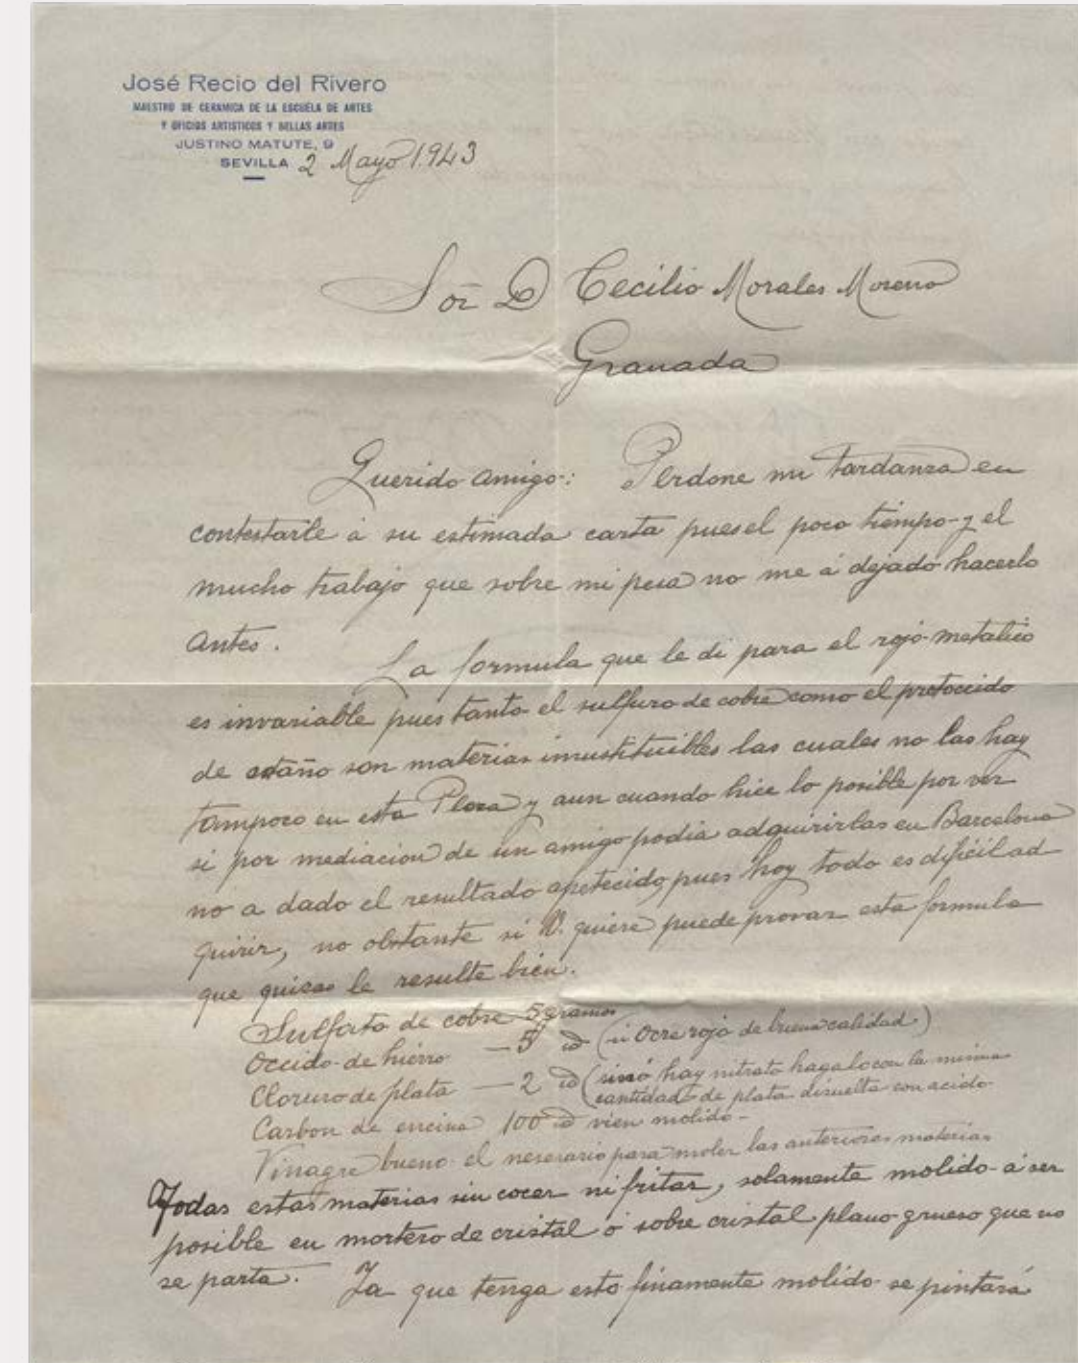 José Recio del Rivero
MAESTRO DE CERAMICA DE LA ESCUELA DE ARTES
Y OFICIOS ARTISTICOS Y BELLAS ARTES
JUSTINO MATUTE, 9
SEVILLA 2 Mayo 1.943
Sor D Cecilio Morales Moreno
Granada
Querido amigo: Perdone mi tardanza en
contestarle á su estimada carta pues el poco tiempo y el
mucho trabajo que sobre mi pesa no me á dejado hacerlo
antes.
La formula que le di para el rojo metalico
es invariable pues tanto el sulfuro de cobre como el protocsido
de estaño son materias insustituibles las cuales no las hay
tampoco en esta Plaza y aun cuando hice lo posible por ver
si por mediacion de un amigo podia adquirirlas en Barcelona
no a dado el resultado apetecido, pues hoy todo es dificil ad
quirir, no obstante si V. quiere puede provar esta formula
que quizas le resulte bien.
Sulfato de cobre 5 gramos
Occido de hierro — 5 id (ú Ocre rojo de buena calidad)
Cloruro de plata — 2 id (sinó hay nitrato hagalo con la misma
cantidad de plata disuelta con acido
Carbon de encina 100 id vien molido-
Vinagre bueno el nesesario para moler las anteriores materias
Todas estas materias sin cocer ni fritar, solamente molido á ser
posible en mortero de cristal ó sobre cristal plano grueso que no
se parta. Ya que tenga esto finamente molido se pintará